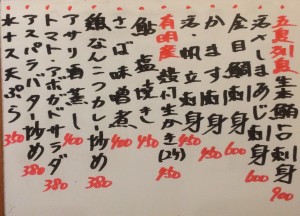 五島列島生本鮪刺身 900
活〆しまあじ刺身 600
金目鯛刺身 600
かます刺身 450
活・帆立刺身 450
有明産 殻付生かき(2ケ) 450
鮎 塩焼き 450
さば味噌煮 400
なんこつカレー炒め 380
アサリ酒蒸し 400
トマト・アボガドサラダ 380
アスパラバター炒め 380
水ナス天ぷら 350